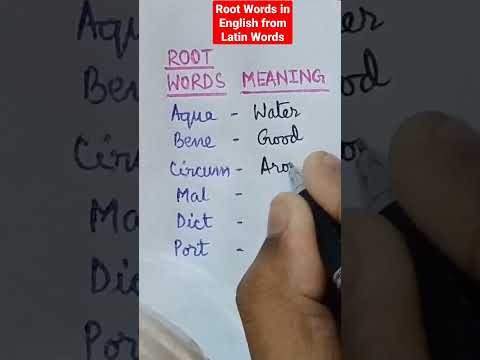 Root Words in
English from
Latin Words
ROOT
WORDS MEANING
Aqua - Water
Bene - Good
Circum - Aro
Mal -
Dict -
Port -